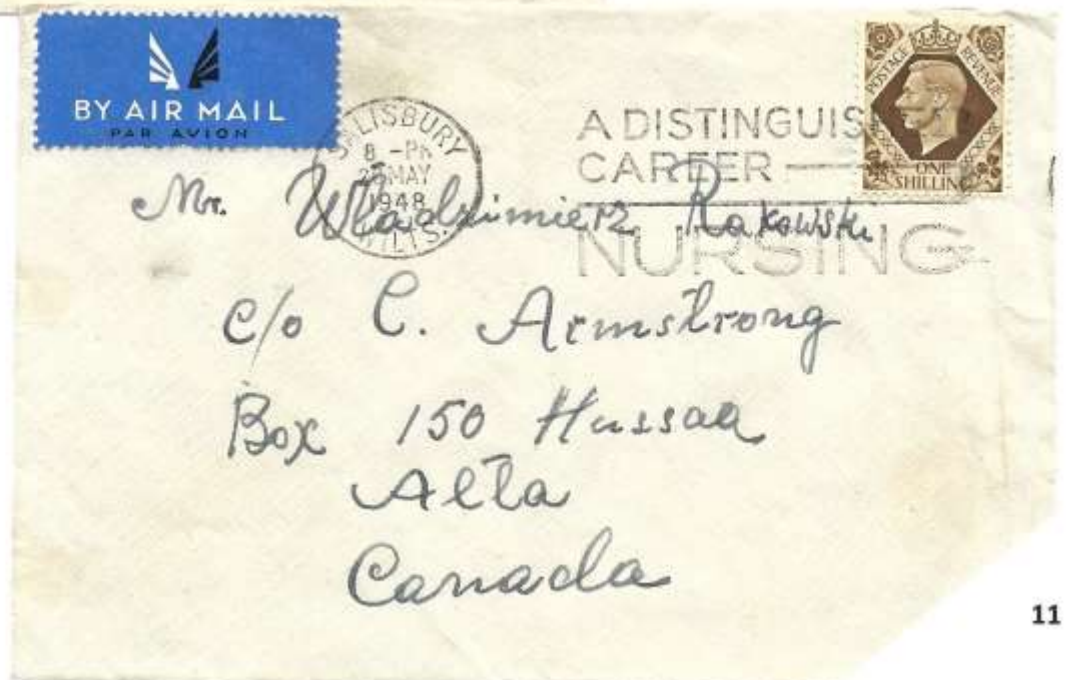 BY AIR MAIL
PAR AVION
SALISBURY
8 -PM
MAY
1948
WILTS.
A DISTINGUIS
CAREER
NURSING
POSTAGE REVENUE
ONE
SHILLING
Mr. Władzimierz Rakowski
c/o C. Armstrong
Box 150 Hussaa
Alta
Canada
11